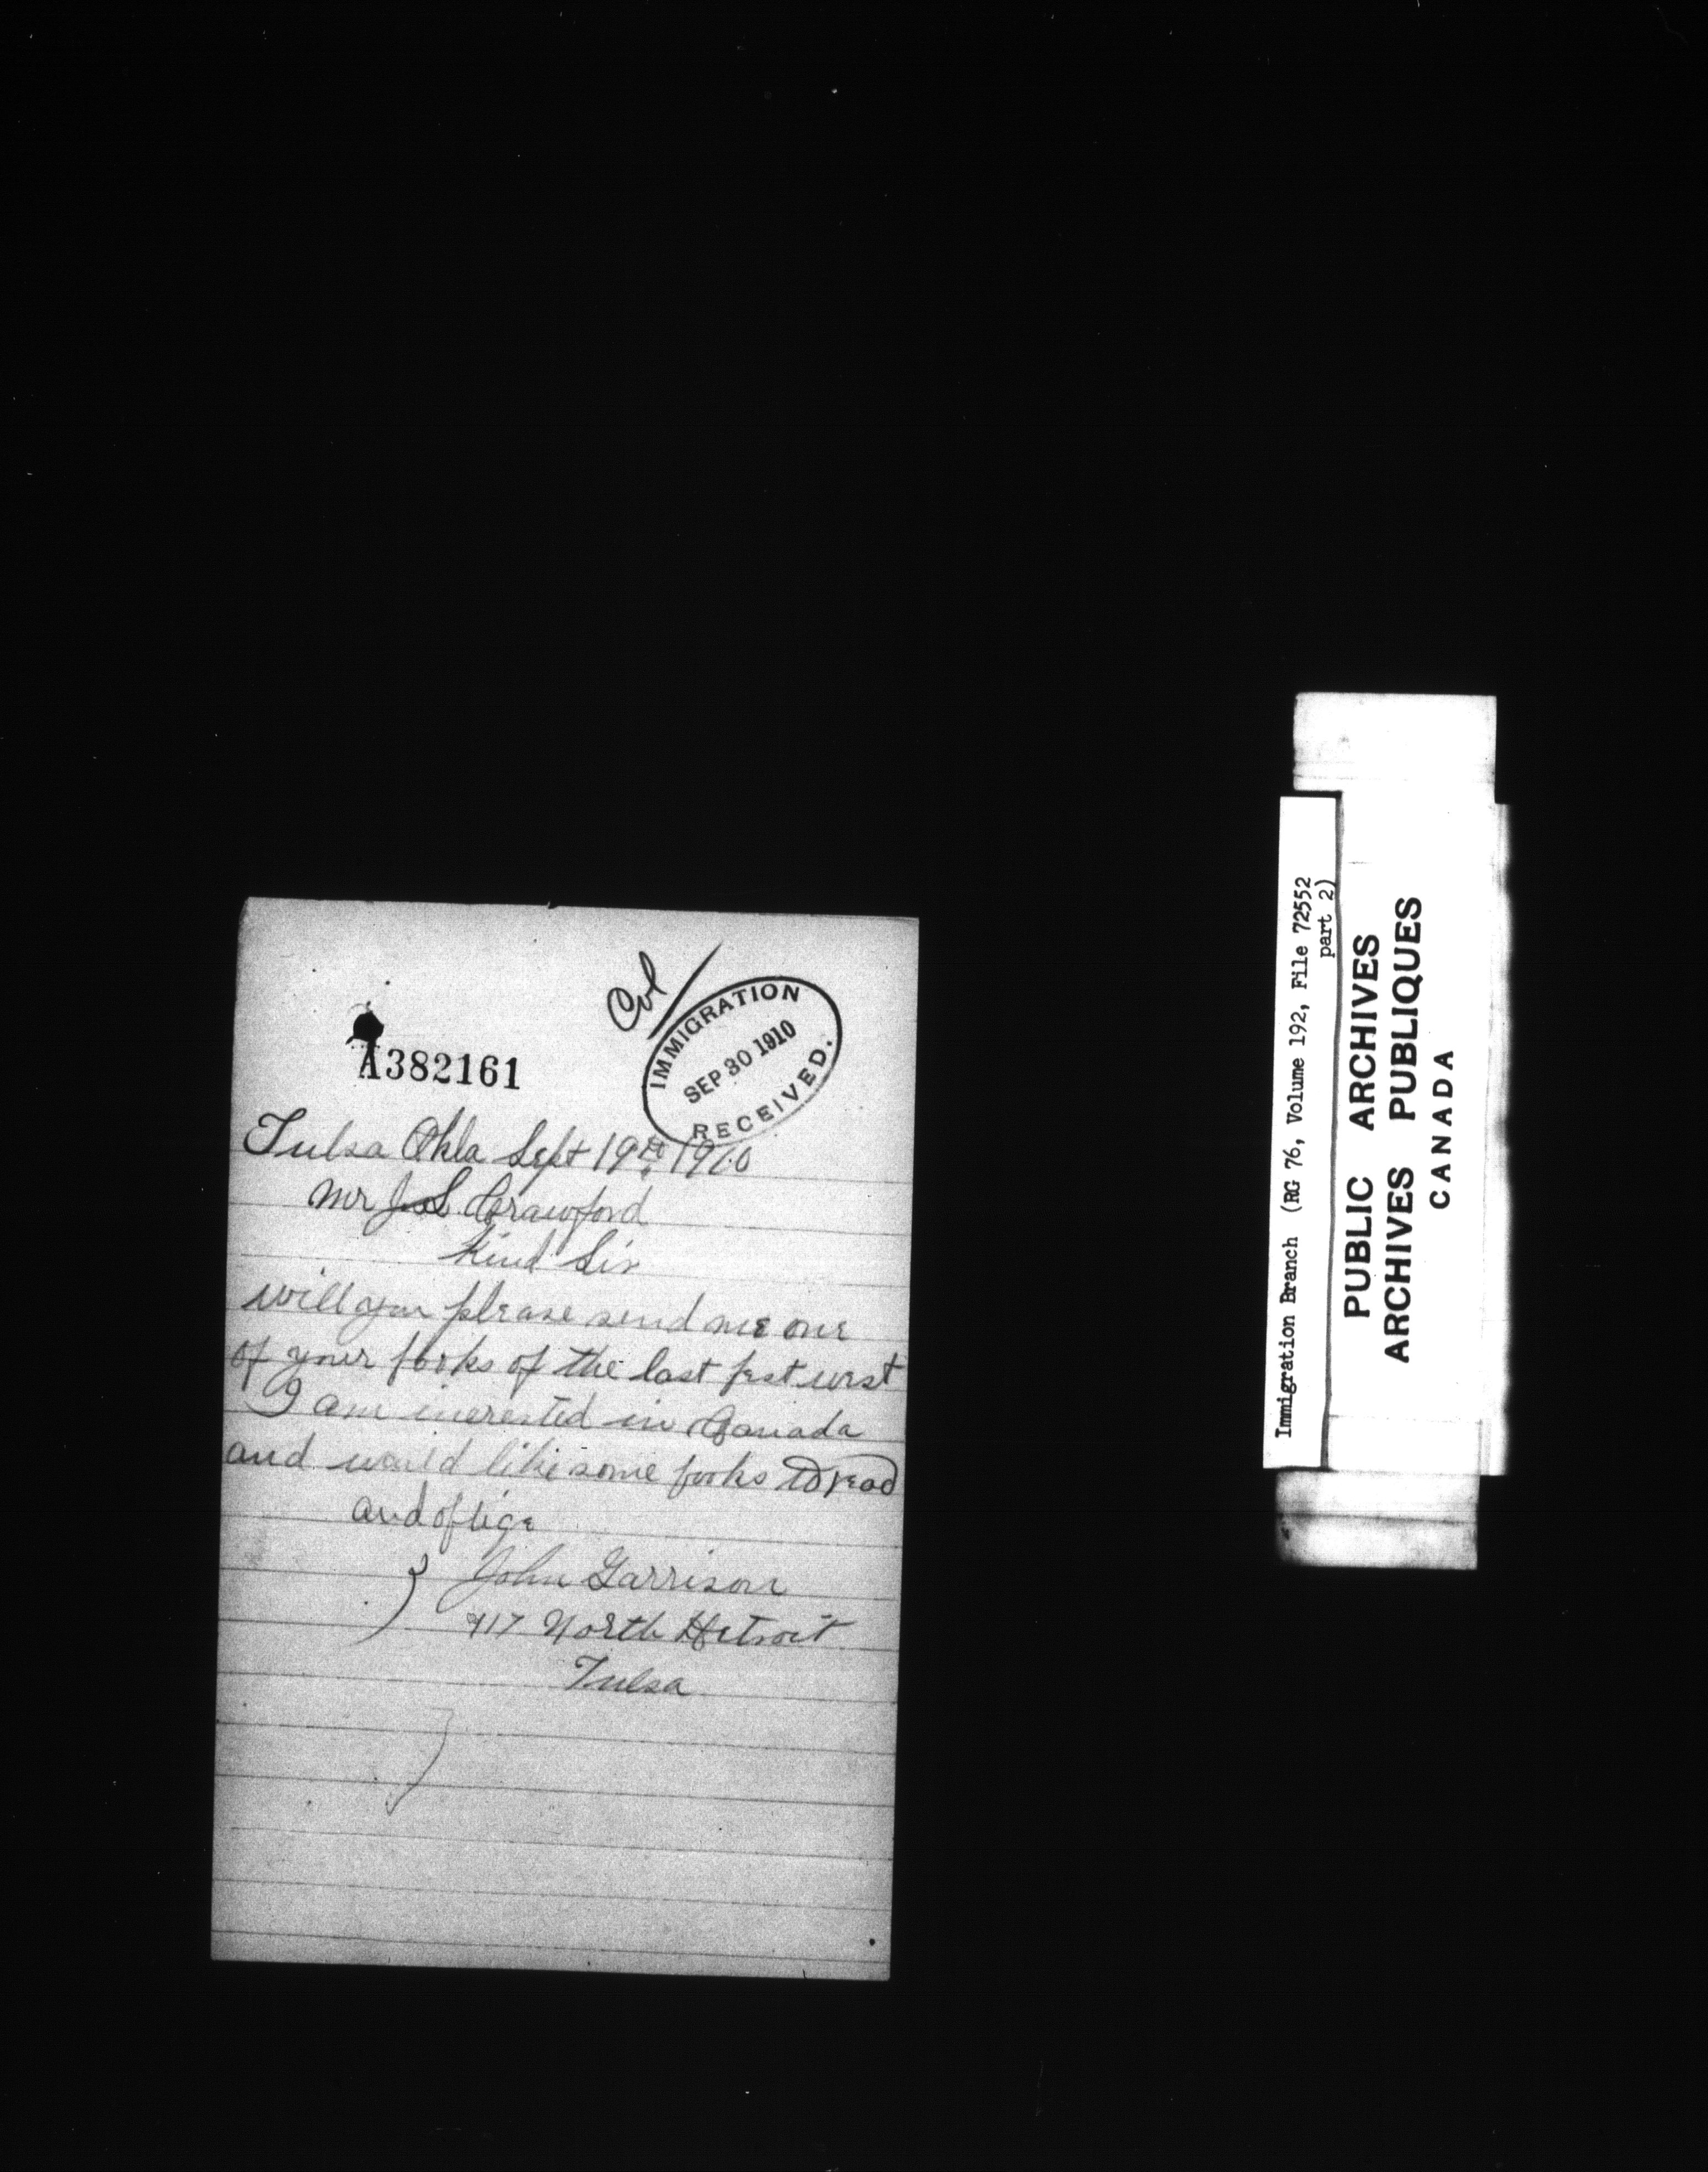 Col
IMMIGRATION
SEP 30 1910
RECEIVED.
A382161
Tulsa Okla Sept 19th 1910
Mr J.S. Crawford
Kind Sir
will you please send me one
of your books of the last best west
I am inerested in Canada
and would like some books to read
and oblige
John Garrison
417 North Detroit
Tulsa
Immigration Branch (RG 76, Volume 192, File 72552
part 2)
PUBLIC ARCHIVES
ARCHIVES PUBLIQUES
CANADA